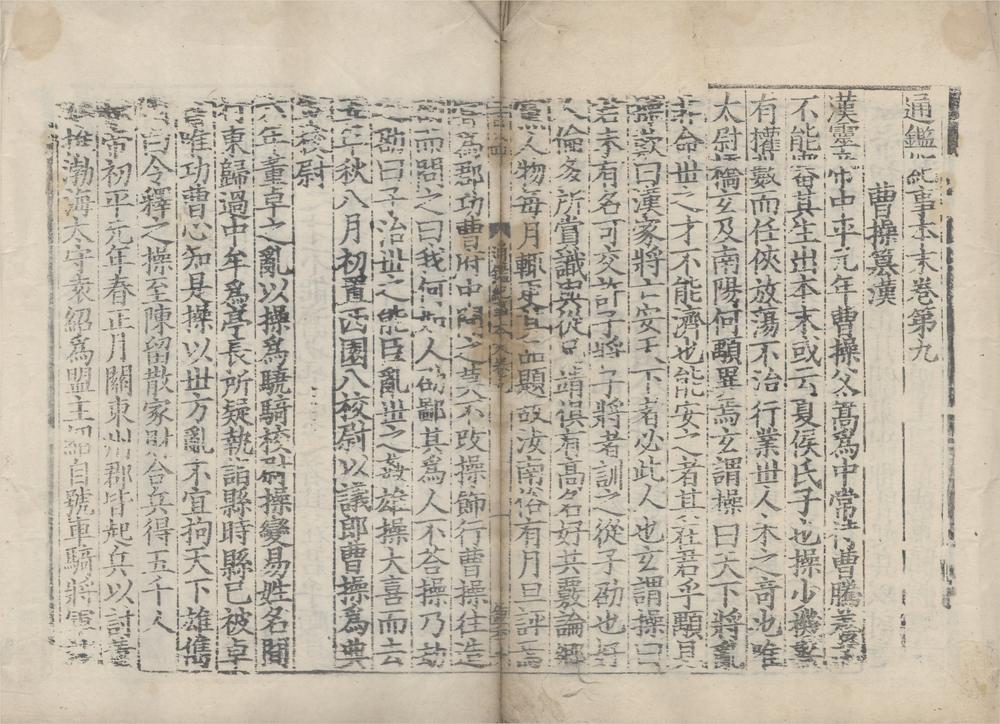 通鑑紀事本末卷第九
曹操篡漢
漢靈帝中平元年曹操父嵩爲中常侍曹騰養子
不能審其生出本末或云夏侯氏子也操少機警
有權數而任俠放蕩不治行業世人未之奇也唯
太尉橋玄及南陽何顒異焉玄謂操曰天下將亂
非命世之才不能濟也能安之者其在君乎顒見
操歎曰漢家將亡安天下者必此人也玄謂操曰
君未有名可交許子將子將者訓之從子劭也好
人倫多所賞識與從兄靖俱有高名好共覈論鄉
黨人物每月輒更其品題故汝南俗有月旦評焉
通鑑紀事本末卷
嘗爲郡功曹府中聞之莫不改操飾行曹操往造
劭而問之曰我何如人劭鄙其爲人不答操乃劫
之劭曰子治世之能臣亂世之姦雄操大喜而去
五年秋八月初置西園八校尉以議郎曹操爲典
軍校尉
六年董卓之亂以操爲驍騎校尉操變易姓名間
行東歸過中牟爲亭長所疑執詣縣時縣已被卓
書唯功曹心知是操以世方亂不宜拘天下雄儁
因白令釋之操至陳留散家財合兵得五千人
帝初平元年春正月關東州郡皆起兵以討董
推渤海太守袁紹爲盟主紹自號車騎將軍